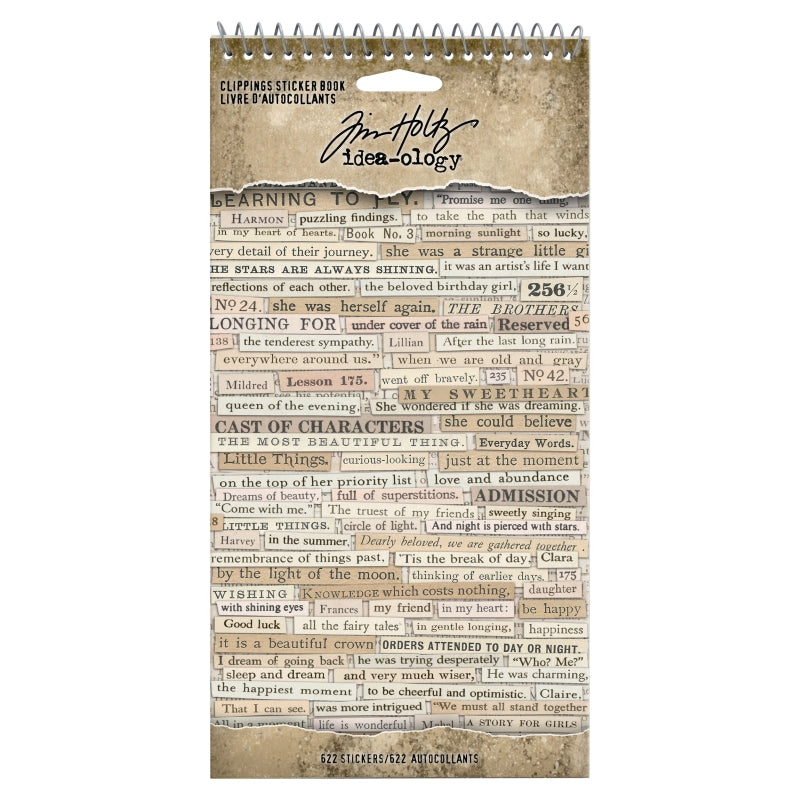 CLIPPINGS STICKER BOOK
LIVRE D'AUTOCOLLANTS
Tim Holtz
idea-ology
LEARNING TO FLY. "Promise me one thing,
HARMON puzzling findings. to take the path that winds
in my heart of hearts. Book No. 3 morning sunlight so lucky,
very detail of their journey. she was a strange little gi
HE STARS ARE ALWAYS SHINING. it was an artist's life I want
reflections of each other. the beloved birthday girl, 256½
No 24. she was herself again. THE BROTHERS
LONGING FOR under cover of the rain Reserved 56
138 the tenderest sympathy. Lillian After the last long rain.
everywhere around us." when we are old and gray
Mildred Lesson 175. went off bravely. 235 No 42.
MY SWEETHEART
queen of the evening, She wondered if she was dreaming.
CAST OF CHARACTERS she could believe
THE MOST BEAUTIFUL THING. Everyday Words.
Little Things. curious-looking just at the moment
on the top of her priority list love and abundance
Dreams of beauty, full of superstitions. ADMISSION
"Come with me." The truest of my friends sweetly singing
8 LITTLE THINGS. circle of light. And night is pierced with stars.
Harvey in the summer, Dearly beloved, we are gathered together
remembrance of things past, 'Tis the break of day, Clara
by the light of the moon. thinking of earlier days. 175
WISHING KNOWLEDGE which costs nothing, daughter
with shining eyes Frances my friend in my heart: be happy
Good luck all the fairy tales in gentle longing, happiness
it is a beautiful crown ORDERS ATTENDED TO DAY OR NIGHT.
I dream of going back he was trying desperately "Who? Me?"
sleep and dream and very much wiser, He was charming,
the happiest moment to be cheerful and optimistic. Claire,
That I can see. was more intrigued "We must all stand together
All in a moment life is wonderful Mabel A STORY FOR GIRLS
622 STICKERS/622 AUTOCOLLANTS